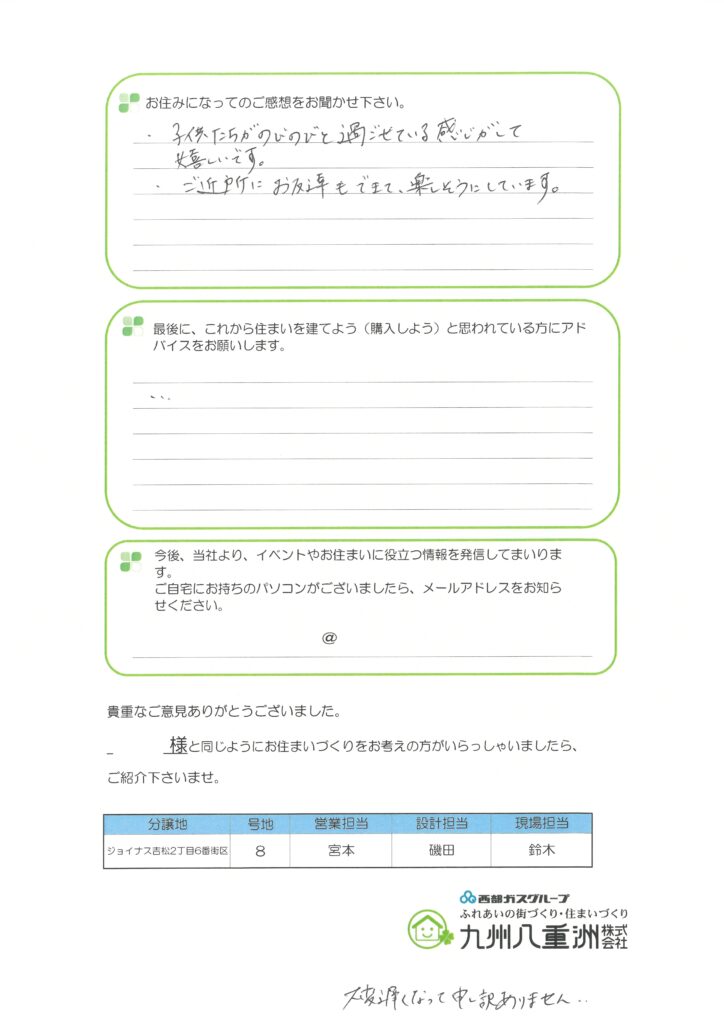 お住みになってのご感想をお聞かせ下さい。
・子供たちがのびのびと過ごせている感じがして
嬉しいです。
・ご近所にお友達もできて、楽しそうにしています。
最後に、これから住まいを建てよう（購入しよう）と思われている方にアド
バイスをお願いします。
・・.
今後、当社より、イベントやお住まいに役立つ情報を発信してまいりま
す。
ご自宅にお持ちのパソコンがございましたら、メールアドレスをお知ら
せください。
@
貴重なご意見ありがとうございました。
_ 様と同じようにお住まいづくりをお考えの方がいらっしゃいましたら、
ご紹介下さいませ。
分譲地 号地 営業担当 設計担当 現場担当
ジョイナス吉松2丁目6番街区 8 宮本 磯田 鈴木
西部ガスグループ
ふれあいの街づくり・住まいづくり
九州八重洲株式会社
大変遅くなって申し訳ありません・・